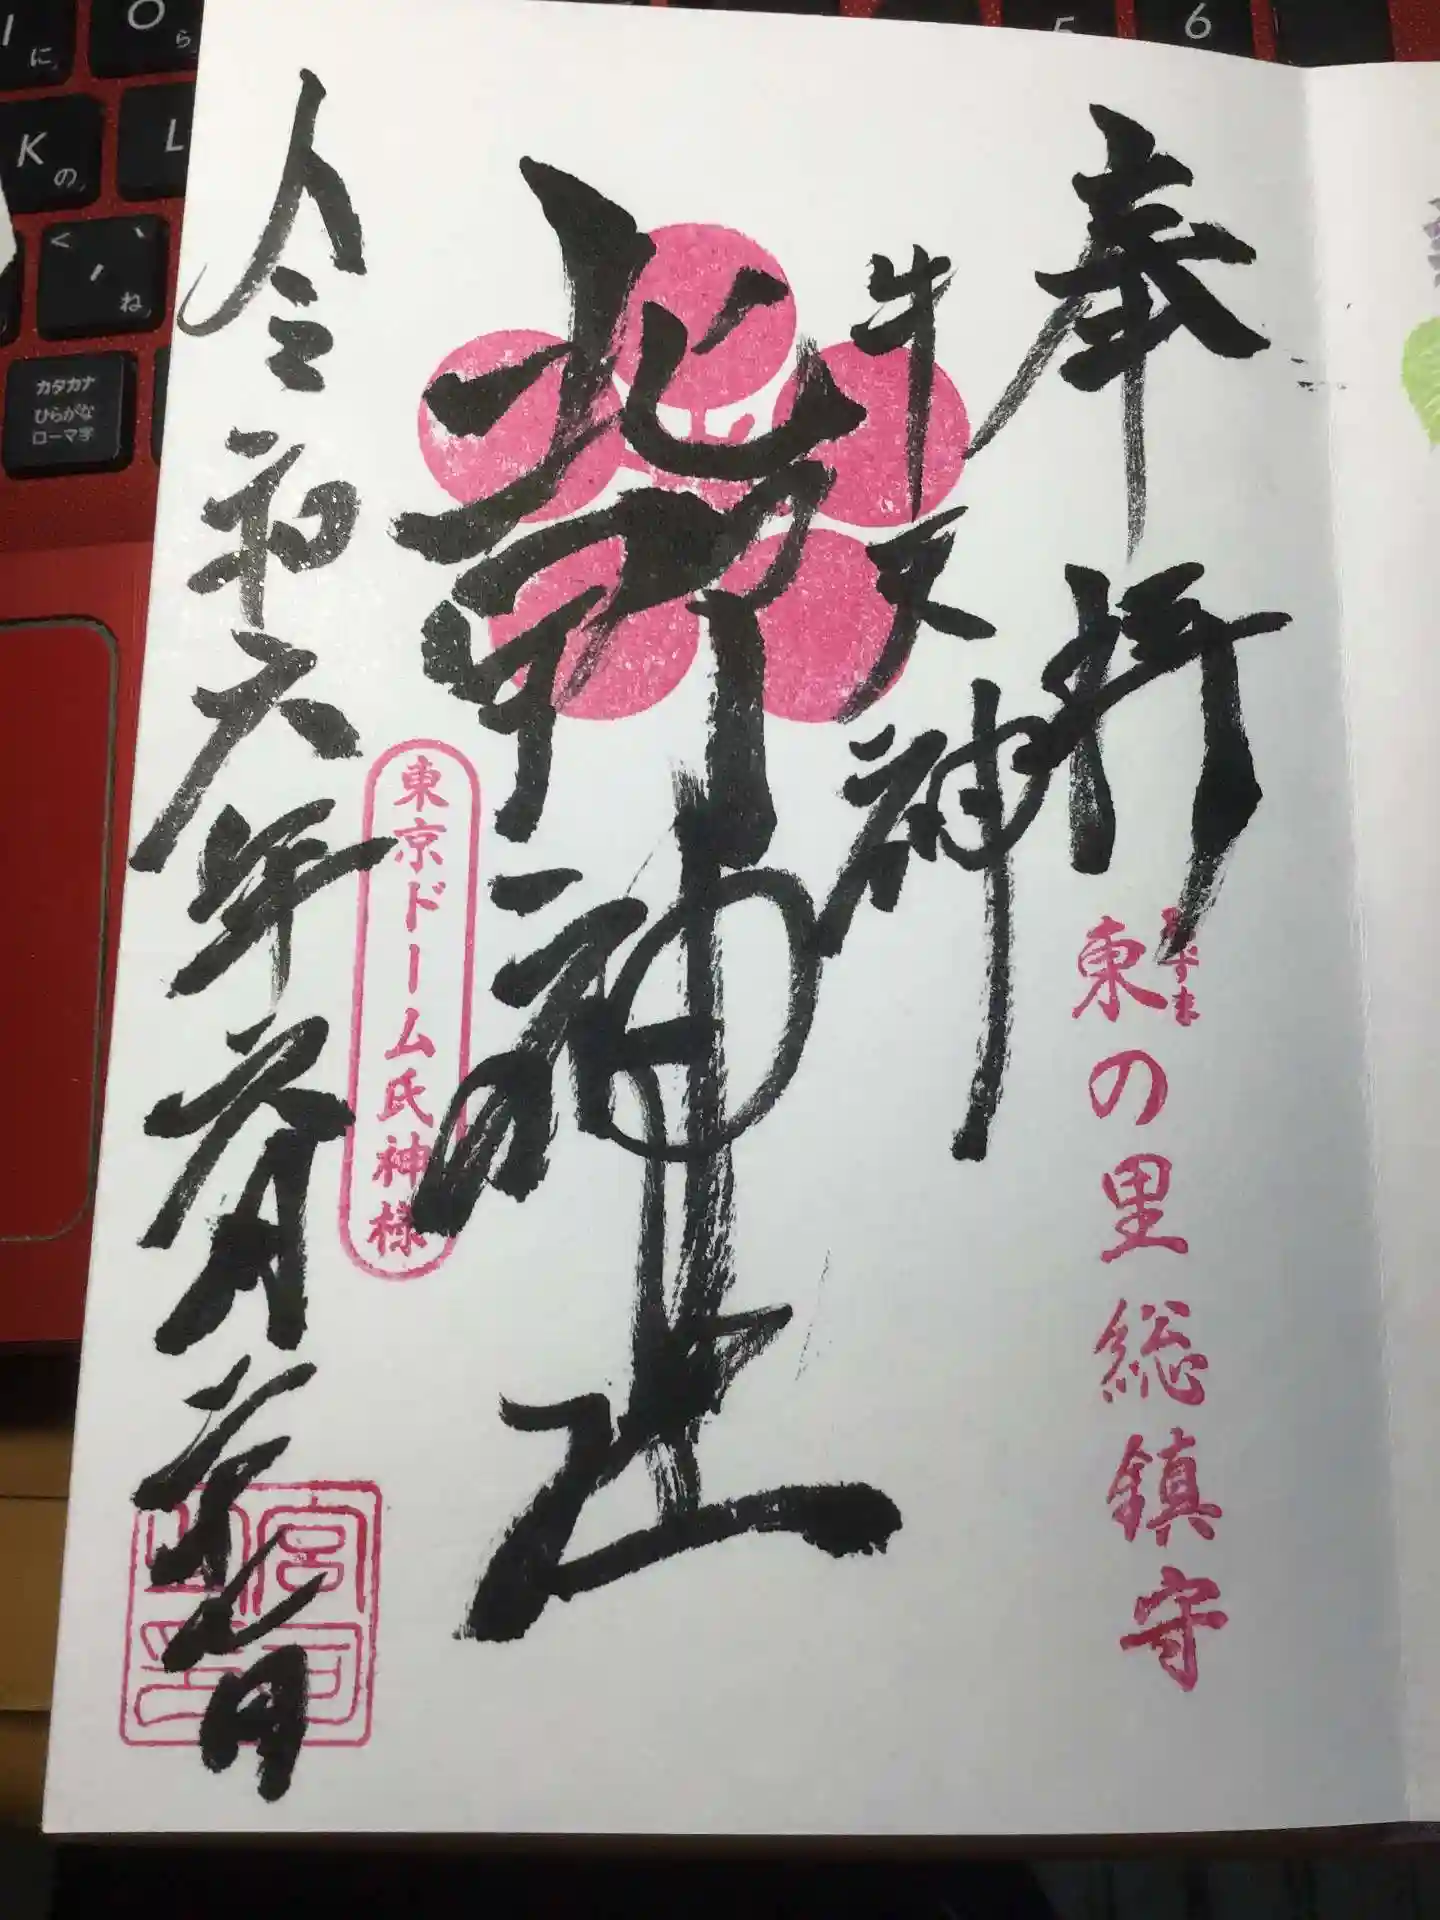 I に
O ら
5
6
K の
L
< 、
, ね
カタカナ
ひらがな
ローマ字
奉拝
あずま
東の里総鎮守
牛天神
北野神社
東京ドーム氏神様
令和六年六月二十七日
宮司之印